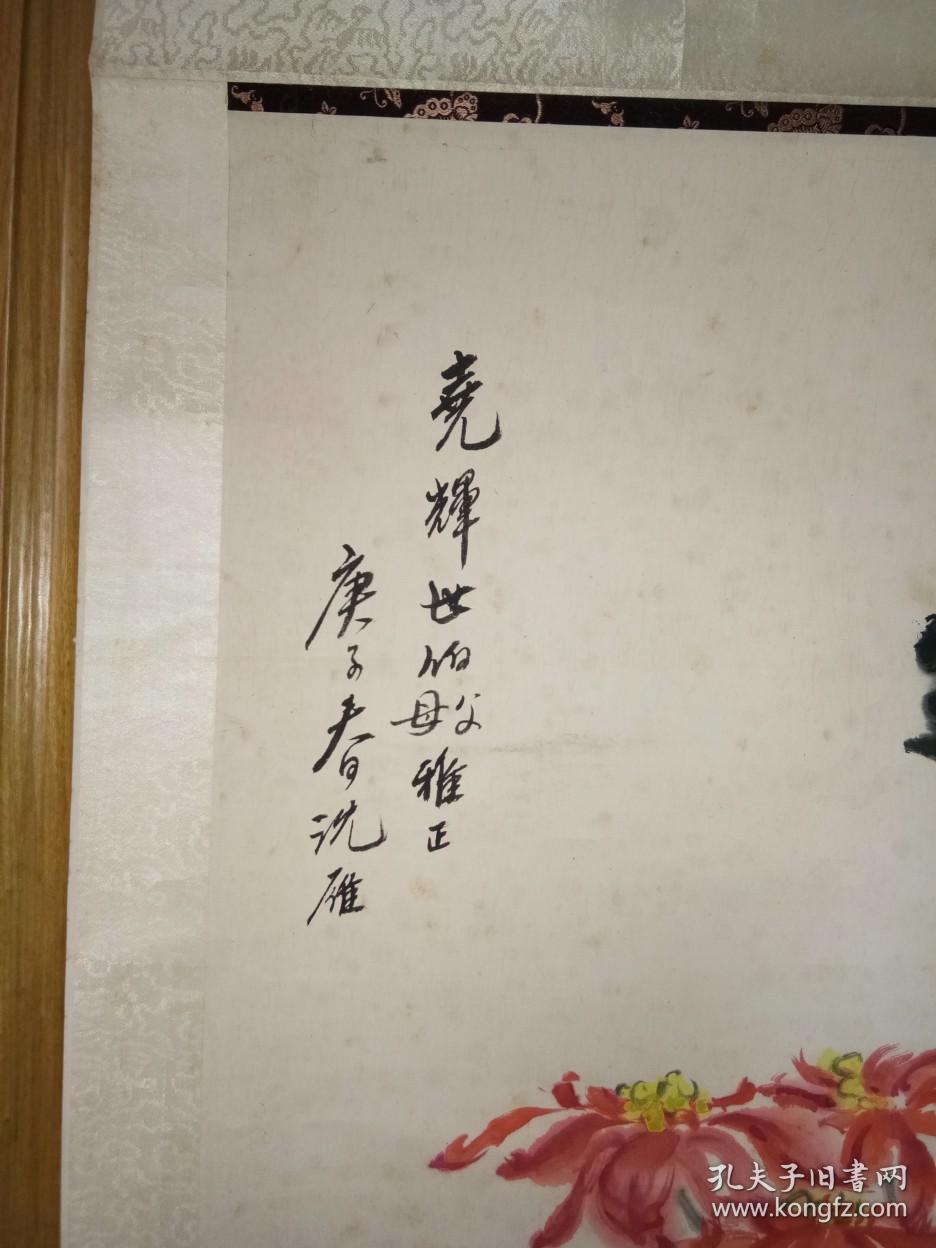 堯輝世伯父母雅正
庚子春沈雁
孔夫子旧書网
www.kongfz.com